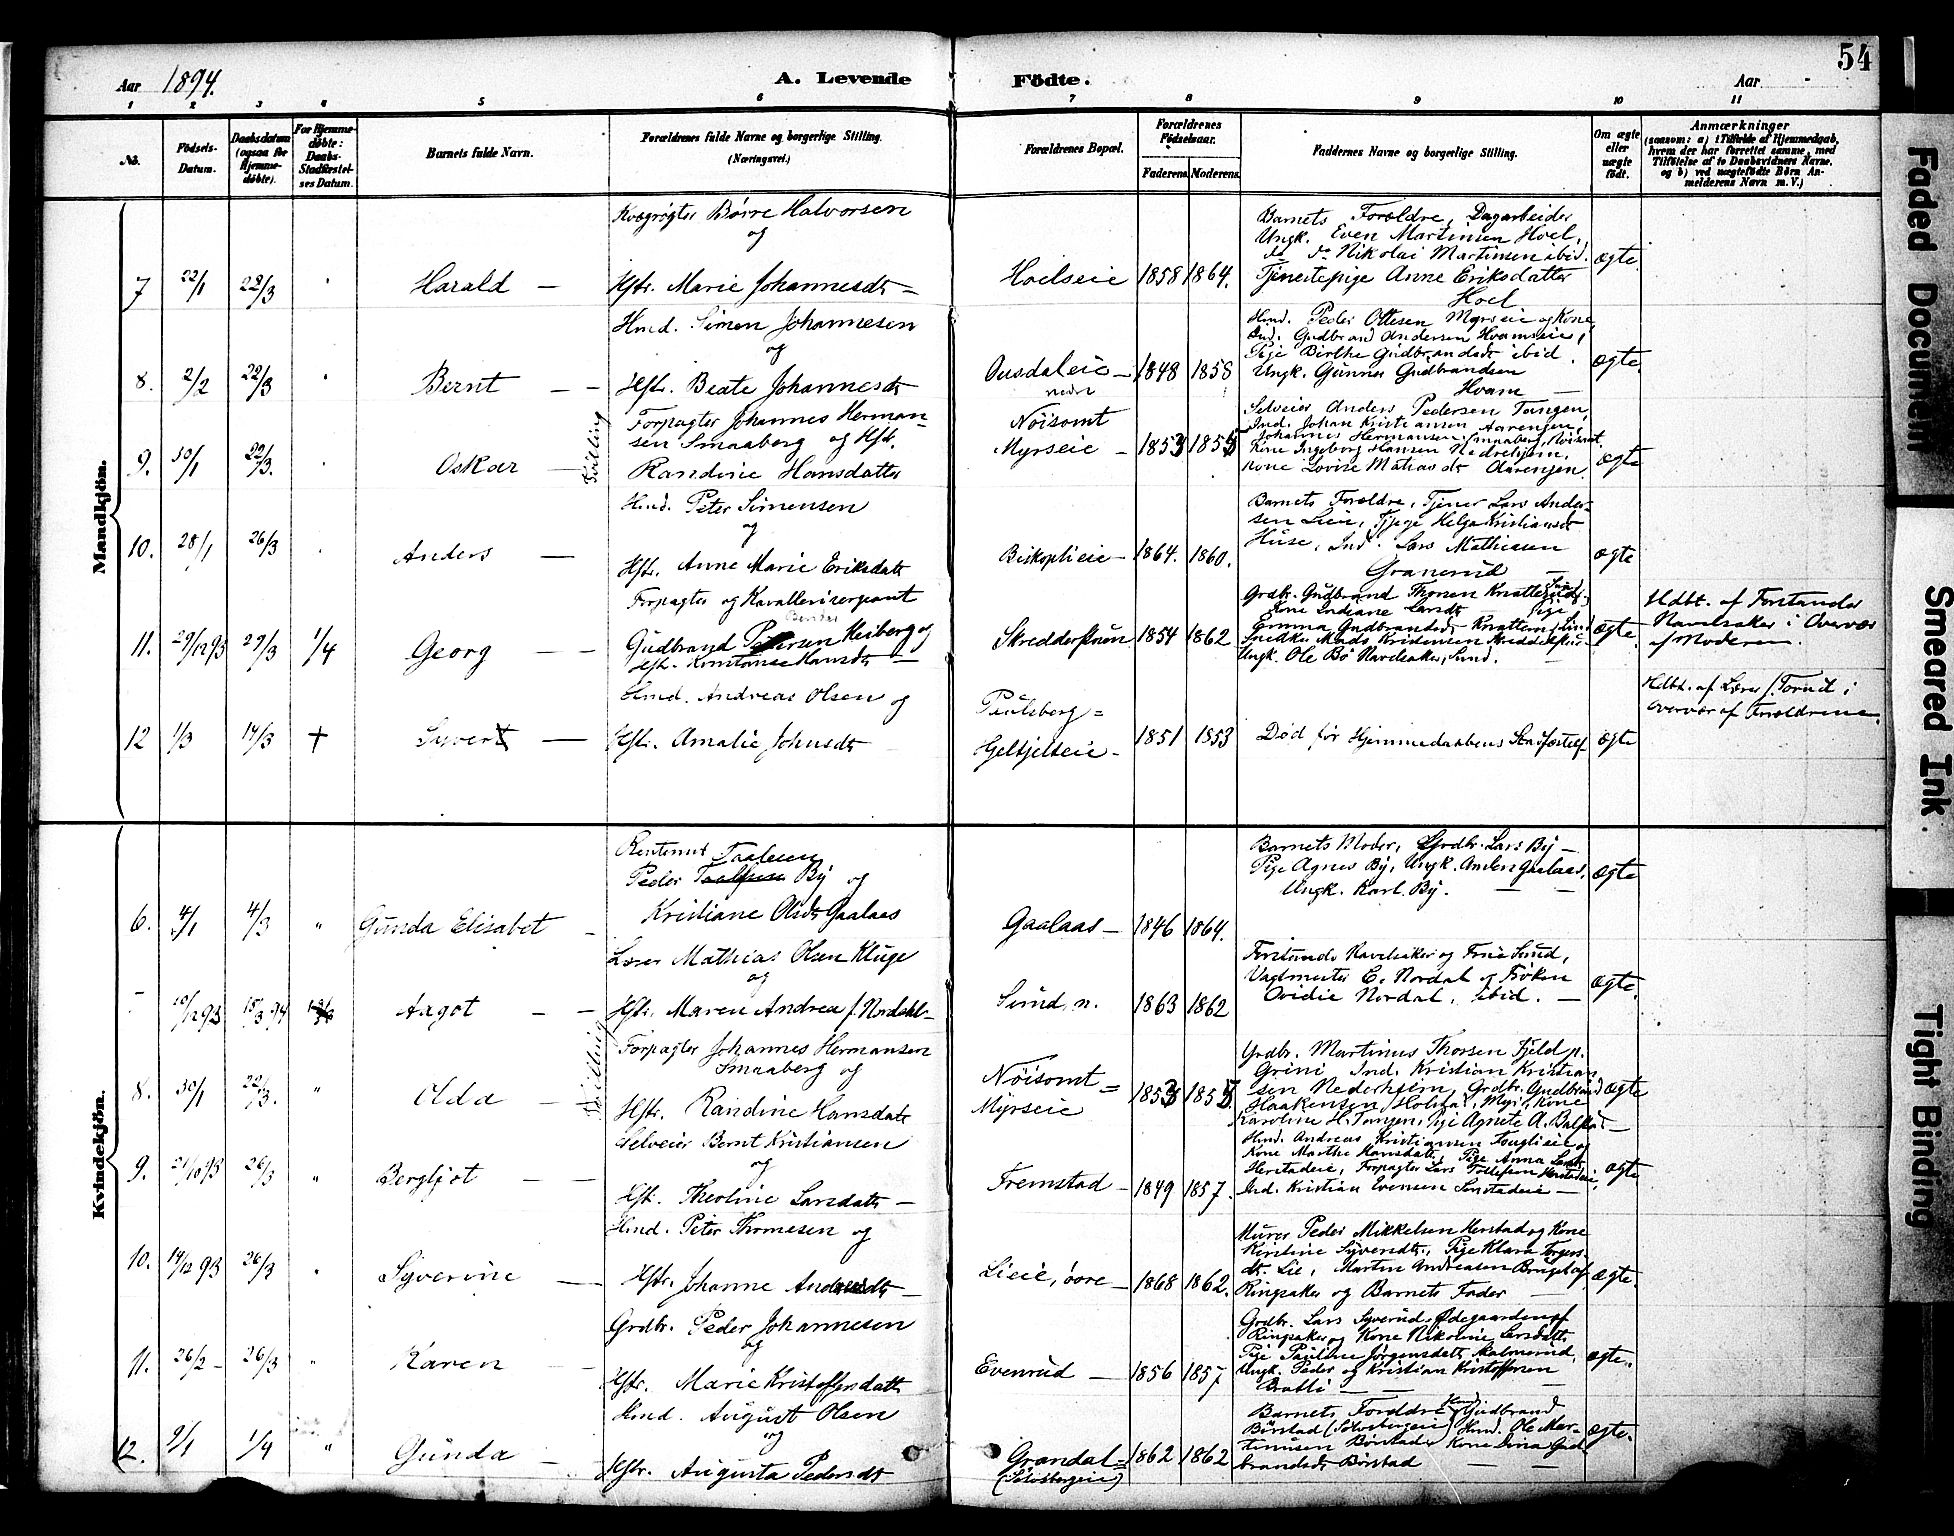 54
Aar 1894.
A. Levende Födte.
Aar
1 2 3 4 5 6 7 8 9 10 11
No.
Födsels-Datum.
Daabsdatum (ogsaa for Hjemmedöbte).
For Hjemmedöbte: Daabs-Stadfæstelses Datum.
Barnets fulde Navn.
Forældrenes fulde Navne og borgerlige Stilling. (Næringsvei.)
Forældrenes Bopæl.
Forældrenes Födselsaar.
Faderens. Moderens.
Faddernes Navne og borgerlige Stilling.
Om ægte eller uægte födt.
Anmærkninger
(saasom: a) i Tilfælde af Hjemmedaab, hvem der har forrettet samme, med Tilföielse af to Daabsvidners Navne, og b) ved uægtefödte Börn Anmelderens Navn m. V.)
Mandkjön.
7 22/1 22/3 Harald —
Kvægrøgter Børre Halvorsen
og
Hstr. Marie Johannesdt
Hoelseie 1858 1864.
Barnets Forældre, Dagarbeider
Ungk. Even Martinsen Hoel,
do do Nikolai Martinsen ibid.
Tjenestepige Anne Eriksdatter
Hoel
ægte
8. 2/2 22/3 Bernt —
Hmd. Simen Johannesen
og
Hstr. Beate Johannesdt
Ousdaleie nedre 1848 1858
Hmd. Peder Ottesen Myrseie og Kone,
Ind. Gudbrand Andersen Hvamseie,
Pige Birthe Gudbrandsdt ibid.
Ungk. Gunnar Gudbrandsen
Hvam —
ægte.
9. 30/1 22/3. Oskar — Tvilling
Forpagter Johannes Herman-
sen Smaaberg og Hstr.
Randine Hansdatter
Nöisomt
Myrseie 1853 1855
Selveier Anders Pedersen Tangen,
Ind. Johan Kristiansen Aarengen,
Johannes Hermansen Smaaberg, Nöisomt.
Kone Ingeborg Hansen Nedrehjem,
Kone Lovise Matiasdt Aarengen
ægte
10. 28/1 26/3 Anders —
Hmd. Peter Simensen
og
Hstr. Anne Marie Eriksdatt
Biskoplieie 1864. 1860.
Barnets Forældre, Tjener Lars Ander-
sen Lieie, Tjpige Helga Kristiansdt
Huse, Ind. Lars Mathiesen
Granerud —
ægte
11. 29/12 93 29/3 1/4 Georg —
Forpagter og Kavallerisergeant
Gudbrand Pedersen Heiberg og
Hstr. Konstanse Hansdt
Skredderstuen 1854 1862
Grdbr. Gudbrand Thorsen Knatterud,
Kone Indiane Larsdt — Pige
Emma Gudbrandsdt Knatterud, Sund
Snedker Mads Kristensen
Ungk. Ole Bö Navelsaker, Sund.
ægte
Hdbt. af Forstander
Navelsaker i Overvær
af Moderen.
12 1/3 14/3 + Syvert —
Hmd. Andreas Olsen og
Hstr. Amalie Johnsdt
Paulsberg=
Gjeltjelseie 1851 1853
Död før Hjemmedaabens Stadfæstelse
ægte
Hdbt. af Lærer J. Torud i
Overvær af Forældrene.
Kvindekjön.
6. 4/1 4/3 " Gunda Elisabet
Rentenist Taalesen
Peder By og
Kristiane Olsdt Gaalaas
Gaalaas 1846 1864.
Barnets Moder, Grdbr. Lars By —
Pige Agnes By, Ungk. Anders Gaalaas,
Ungk. Karl By.
ægte
10/12 93 15/3 94 Aagot —
Lærer Mathias Olsen Kluge
og
Hstr. Maren Andrea f. Nordahl
Sund, n. 1863 1862
Forstander Navelsaker og Frue Sund,
Vagtmester E. Nordal og Frøken
Ovidie Nordal, ibid. —
ægte.
8. 30/1 22/3. " Olda — Tvilling
Forpagter Johannes Hermansen
Smaaberg og
Hstr. Randine Hansdatt
Nöisomt=
Myrseie 1853 1855
Grdbr. Martinus Thorsen Fjeld p.
Grini Ind. Kristian Kristian-
sen Nederhjem, Grdbr. Gudbrand
Haakensen Holsta, Myr, Kone
Karoline H. Tangen, Pige Agnete A. Balke
ægte
9. 21/10 93 26/3 " Bergljot —
Selveier Bernt Kristiansen
og
Hst. Theoline Larsdatt
Fremstad 1849 1857.
Hmd. Andreas Kristiansen og
Kone Marthe Hansdatt, Pige Anna Larsdt
Herstadeie, Forpagter Lars Tollefsen Herstadeie,
Ind. Kristian Evensen Sonstadeie —
ægte
10. 14/12 93 26/3 Syverine —
Hmd. Peter Thomesen og
Hstr. Johanne Andersdt
Lieie, övre 1868 1862.
Murer Peder Mikkelsen Herstad og Kone
Kirstine Syversdt., Pige Klara Torgers-
dt. Lie, Martin Andreasen af
Ringsaker og Barnets Fader —
ægte.
11. 26/2 26/3 " Karen —
Grdbr. Peder Johannesen
og
Hstr. Marie Kristoffersdatt
Evenrud 1856 1857
Grdbr. Lars Syverud Ødegaarden af
Ringsaker og Kone Nikoline Larsdatt
Pige Pauline Jörgensdatt Malmerud,
Ungk. Peder og Kristian Kristoffersen
Bratli —
ægte.
12. 9/1 1/4 " Gunda —
Hmd. August Olsen
og
Hstr. Augusta Pedersdt
Grandal=
(Solvbergeie) 1862 1862
Barnets Forældre Hmd. Gudbrand
Börstad (Solvbergeie) Hmd. Ole Mar-
tinusen Börstad, Kone Lina Gud-
brandsdt Börstad
ægte.
Faded Document
Smeared Ink.
Tight Binding